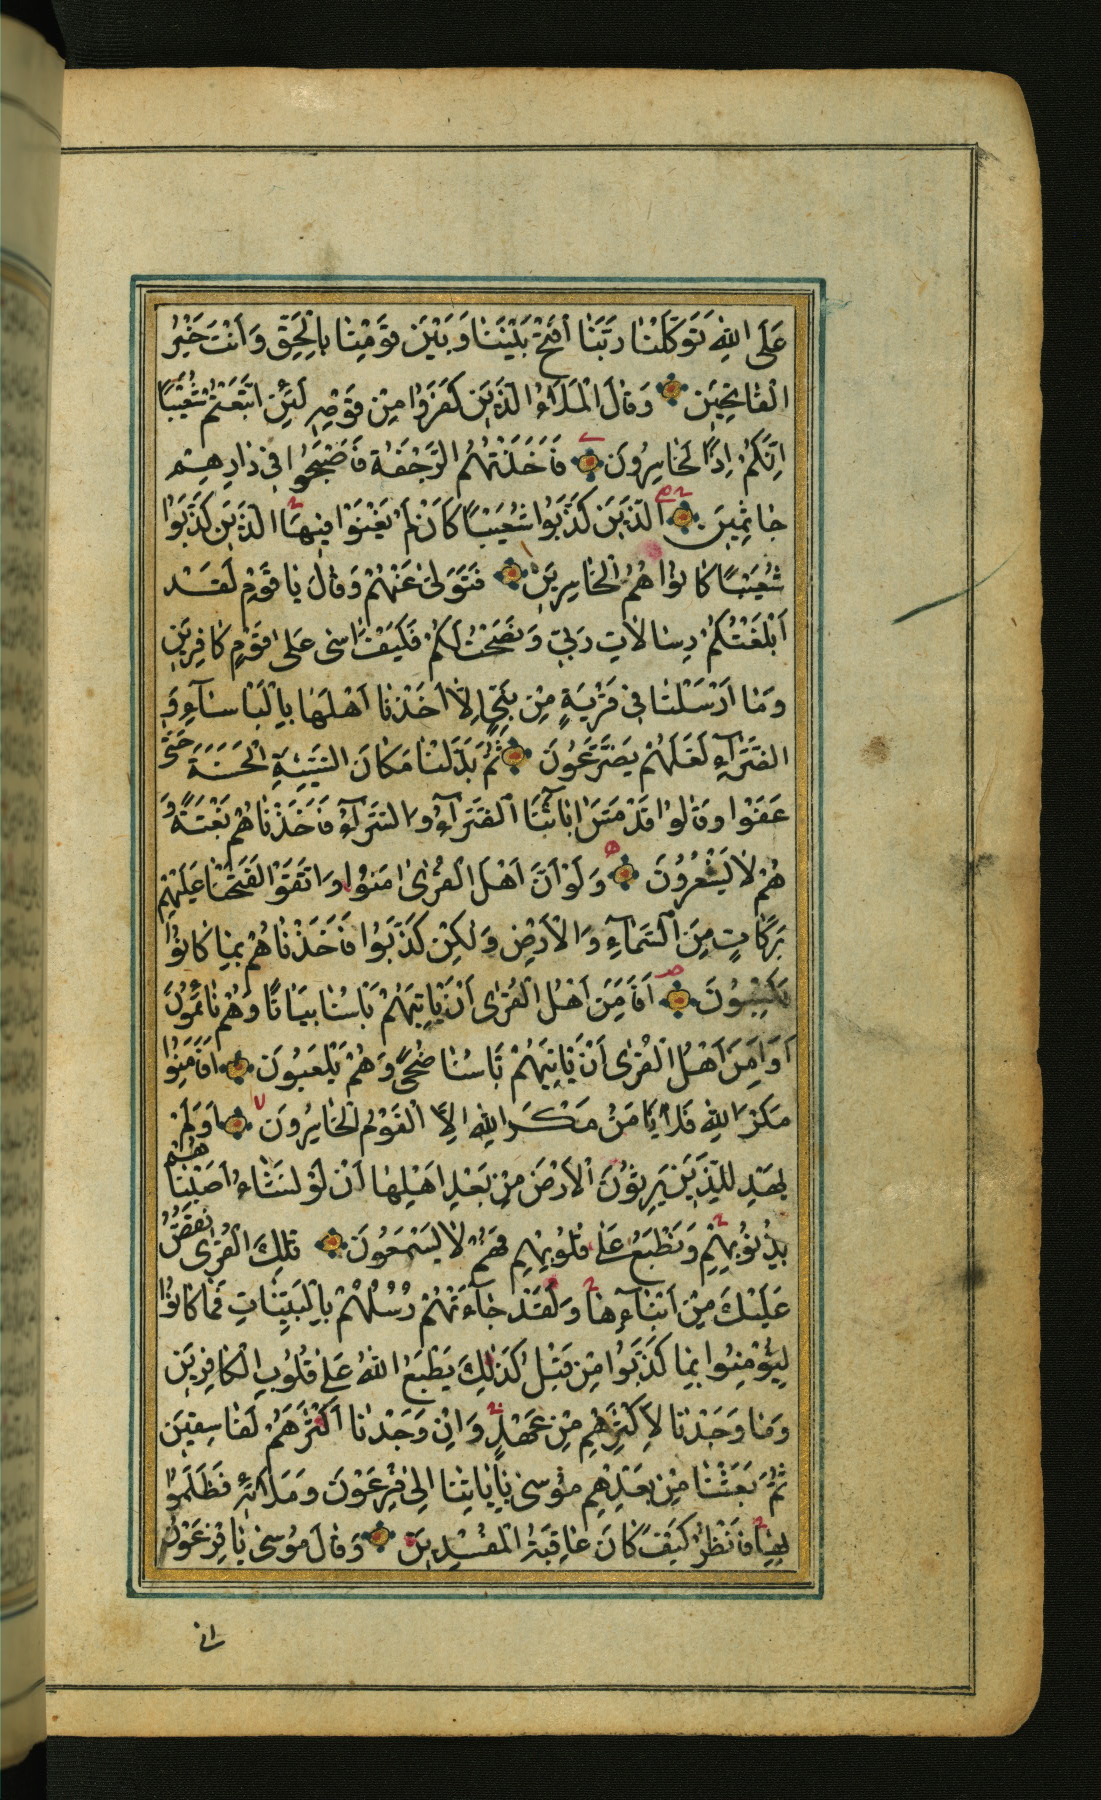 عَلَى اللّٰهِ تَوَكَّلْنَا رَبَّنَا افْتَحْ بَيْنَنَا وَبَيْنَ قَوْمِنَا بِالْحَقِّ وَاَنْتَ خَيْرُ
الْفَاتِحِينَ وَقَالَ الْمَلَاءُ الَّذِينَ كَفَرُوا مِنْ قَوْمِهِ لَئِنِ اتَّبَعْتُمْ شُعَيْبًا
اِنَّكُمْ اِذًا لَخَاسِرُونَ فَاَخَذَتْهُمُ الرَّجْفَةُ فَاَصْبَحُوا فِي دَارِهِمْ
جَاثِمِينَ الَّذِينَ كَذَّبُوا شُعَيْبًا كَاَنْ لَمْ يَغْنَوْا فِيهَا الَّذِينَ كَذَّبُوا
شُعَيْبًا كَانُوا هُمُ الْخَاسِرِينَ فَتَوَلّٰى عَنْهُمْ وَقَالَ يَا قَوْمِ لَقَدْ
اَبْلَغْتُكُمْ رِسَالَاتِ رَبِّي وَنَصَحْتُ لَكُمْ فَكَيْفَ اٰسٰى عَلٰى قَوْمٍ كَافِرِينَ
وَمَا اَرْسَلْنَا فِي قَرْيَةٍ مِنْ نَبِيٍّ اِلَّا اَخَذْنَا اَهْلَهَا بِالْبَاْسَآءِ وَ
الضَّرَّآءِ لَعَلَّهُمْ يَضَّرَّعُونَ ثُمَّ بَدَّلْنَا مَكَانَ السَّيِّئَةِ الْحَسَنَةَ حَتّٰى
عَفَوْا وَقَالُوا قَدْ مَسَّ اٰبَائَنَا الضَّرَّآءُ وَالسَّرَّآءُ فَاَخَذْنَاهُمْ بَغْتَةً وَ
هُمْ لَا يَشْعُرُونَ وَلَوْ اَنَّ اَهْلَ الْقُرٰى اٰمَنُوا وَاتَّقَوْا لَفَتَحْنَا عَلَيْهِمْ
بَرَكَاتٍ مِنَ السَّمَآءِ وَالْاَرْضِ وَلٰكِنْ كَذَّبُوا فَاَخَذْنَاهُمْ بِمَا كَانُوا
يَكْسِبُونَ اَفَاَمِنَ اَهْلُ الْقُرٰى اَنْ يَاْتِيَهُمْ بَاْسُنَا بَيَاتًا وَهُمْ نَائِمُونَ
اَوَاَمِنَ اَهْلُ الْقُرٰى اَنْ يَاْتِيَهُمْ بَاْسُنَا ضُحًى وَهُمْ يَلْعَبُونَ اَفَاَمِنُوا
مَكْرَ اللّٰهِ فَلَا يَاْمَنُ مَكْرَ اللّٰهِ اِلَّا الْقَوْمُ الْخَاسِرُونَ اَوَلَمْ
يَهْدِ لِلَّذِينَ يَرِثُونَ الْاَرْضَ مِنْ بَعْدِ اَهْلِهَا اَنْ لَوْ نَشَاءُ اَصَبْنَاهُمْ
بِذُنُوبِهِمْ وَنَطْبَعُ عَلٰى قُلُوبِهِمْ فَهُمْ لَا يَسْمَعُونَ تِلْكَ الْقُرٰى نَقُصُّ
عَلَيْكَ مِنْ اَنْبَآءِهَا وَلَقَدْ جَآءَتْهُمْ رُسُلُهُمْ بِالْبَيِّنَاتِ فَمَا كَانُوا
لِيُؤْمِنُوا بِمَا كَذَّبُوا مِنْ قَبْلُ كَذٰلِكَ يَطْبَعُ اللّٰهُ عَلٰى قُلُوبِ الْكَافِرِينَ
وَمَا وَجَدْنَا لِاَكْثَرِهِمْ مِنْ عَهْدٍ وَاِنْ وَجَدْنَا اَكْثَرَهُمْ لَفَاسِقِينَ
ثُمَّ بَعَثْنَا مِنْ بَعْدِهِمْ مُوسٰى بِاٰيَاتِنَا اِلٰى فِرْعَوْنَ وَمَلَائِهِ فَظَلَمُوا
بِهَا فَانْظُرْ كَيْفَ كَانَ عَاقِبَةُ الْمُفْسِدِينَ وَقَالَ مُوسٰى يَا فِرْعَوْنُ
انى